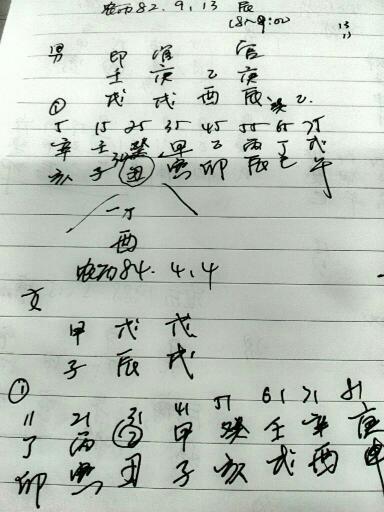 农历82.9.13 辰
男 印 官 官
壬 庚 乙 庚
戌 戌 酉 辰 癸 乙
①
5 15 25 35 45 55 65 75
辛 壬 癸 甲 乙 丙 丁 戊
亥 子 丑 寅 卯 辰 巳 午
一丁
酉
农历84.4.4
女 甲 戊 戊
子 辰 戌
①
11 21 31 41 51 61 71 81
丁 丙 乙 甲 癸 壬 辛 庚
卯 寅 丑 子 亥 戌 酉 申